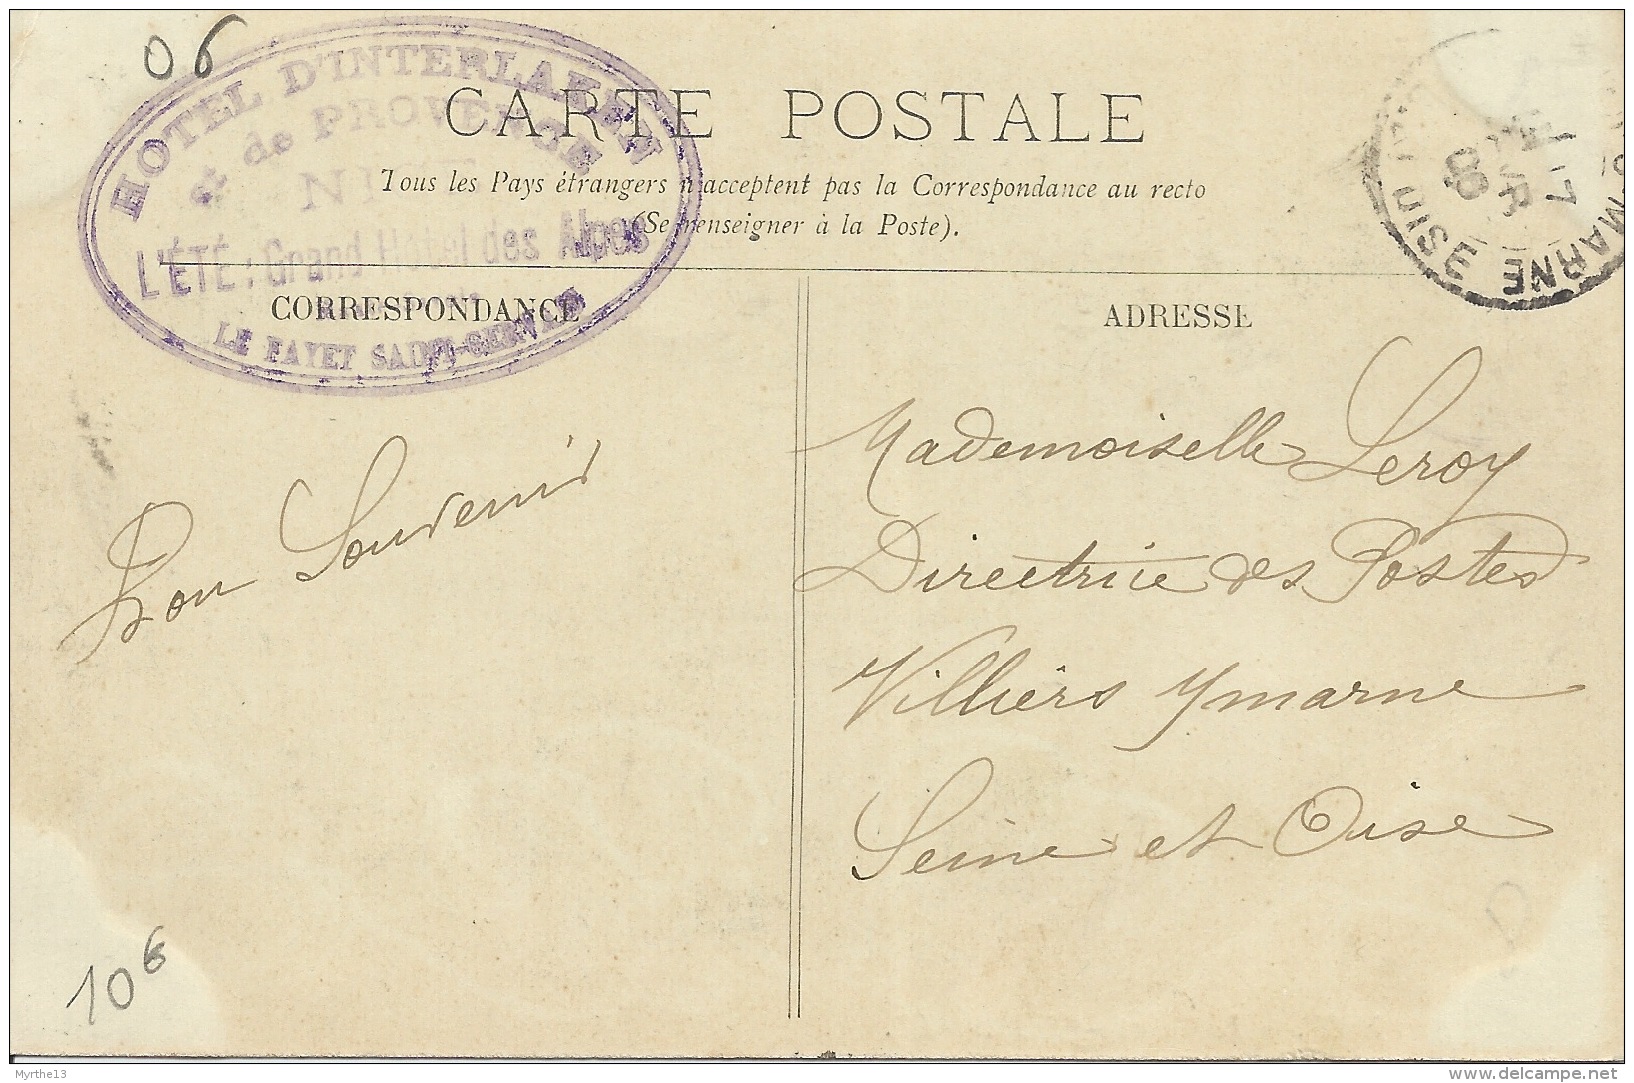 06
HOTEL D'INTERLAKEN
et de PROVENCE
NICE
L'ÉTÉ : Grand Hotel des Alpes
LE FAYET SAINT-GERVAIS
CARTE POSTALE
Tous les Pays étrangers n'acceptent pas la Correspondance au recto
(Se renseigner à la Poste).
MARNE
17
08
CORRESPONDANCE
ADRESSE
Bon Souvenir
Mademoiselle Leroy
Directrice des Postes
Villiers s/marne
Seine et Oise
10€
Myrthe13
www.delcampe.net